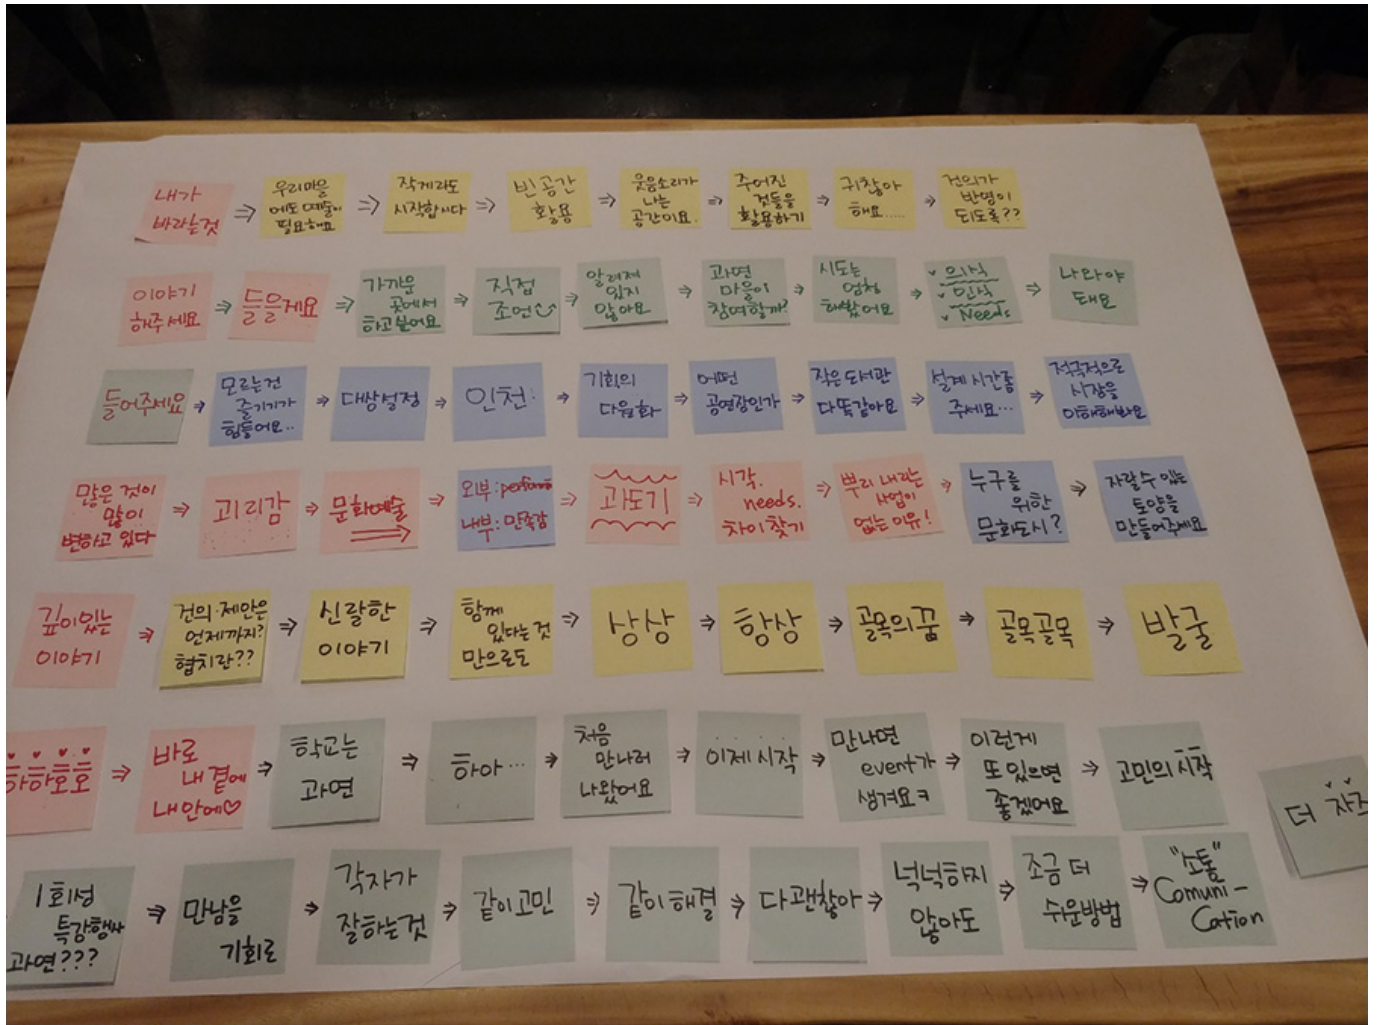 내가
바라는것
⇒
우리마을
에도 예술이
필요해요
⇒
작게라도
시작합시다
⇒
빈공간
활용
⇒
웃음소리가
나는
공간이요.
⇒
주어진
것들을
활용하기
⇒
귀찮아
해요......
⇒
건의가
반영이
되도록??
이야기
해주세요
⇒
들을게요
⇒
가까운
곳에서
하고싶어요
⇒
직접
조언
⇒
알려져
있지
않아요
⇒
과연
마을이
참여할까?
⇒
시도는
엄청
해봤어요
⇒
의식
인식
Needs
⇒
나와야
돼요
들어주세요
⇒
모르는건
즐기기가
힘들어요..
⇒
대상설정
⇒
인천:
⇒
기회의
다원화
⇒
어떤
공연장인가
⇒
작은도서관
다똑같아요
⇒
설계 시간좀
주세요...
⇒
적극적으로
시장을
이해해봐요
많은 것이
많이
변하고 있다
⇒
괴리감
⇒
문화예술
⇒
외부:
내부: 만족감
⇒
과도기
⇒
시각.
needs.
차이찾기
⇒
뿌리 내리는
사업이
없는 이유!
⇒
누구를
위한
문화도시?
⇒
자랄수 있는
토양을
만들어주세요
깊이있는
이야기
⇒
건의·제안은
언제까지?
협치란??
⇒
신랄한
이야기
⇒
함께
있다는 것
만으로도
⇒
상상
⇒
항상
⇒
골목의꿈
⇒
골목골목
⇒
발굴
하하호호
⇒
바로
내 곁에
내 안에♡
⇒
학교는
과연
⇒
하아...
⇒
처음
만나러
나왔어요
⇒
이제시작
⇒
만나면
event가
생겨요ㅋ
⇒
이런게
또 있으면
좋겠어요
⇒
고민의 시작
더 자주
1회성
특강행사
과연???
⇒
만남을
기회로
⇒
각자가
잘하는것
⇒
같이고민
⇒
같이해결
⇒
다괜찮아
⇒
넉넉하지
않아도
⇒
조금 더
쉬운방법
⇒
"소통"
Comuni-
Cation